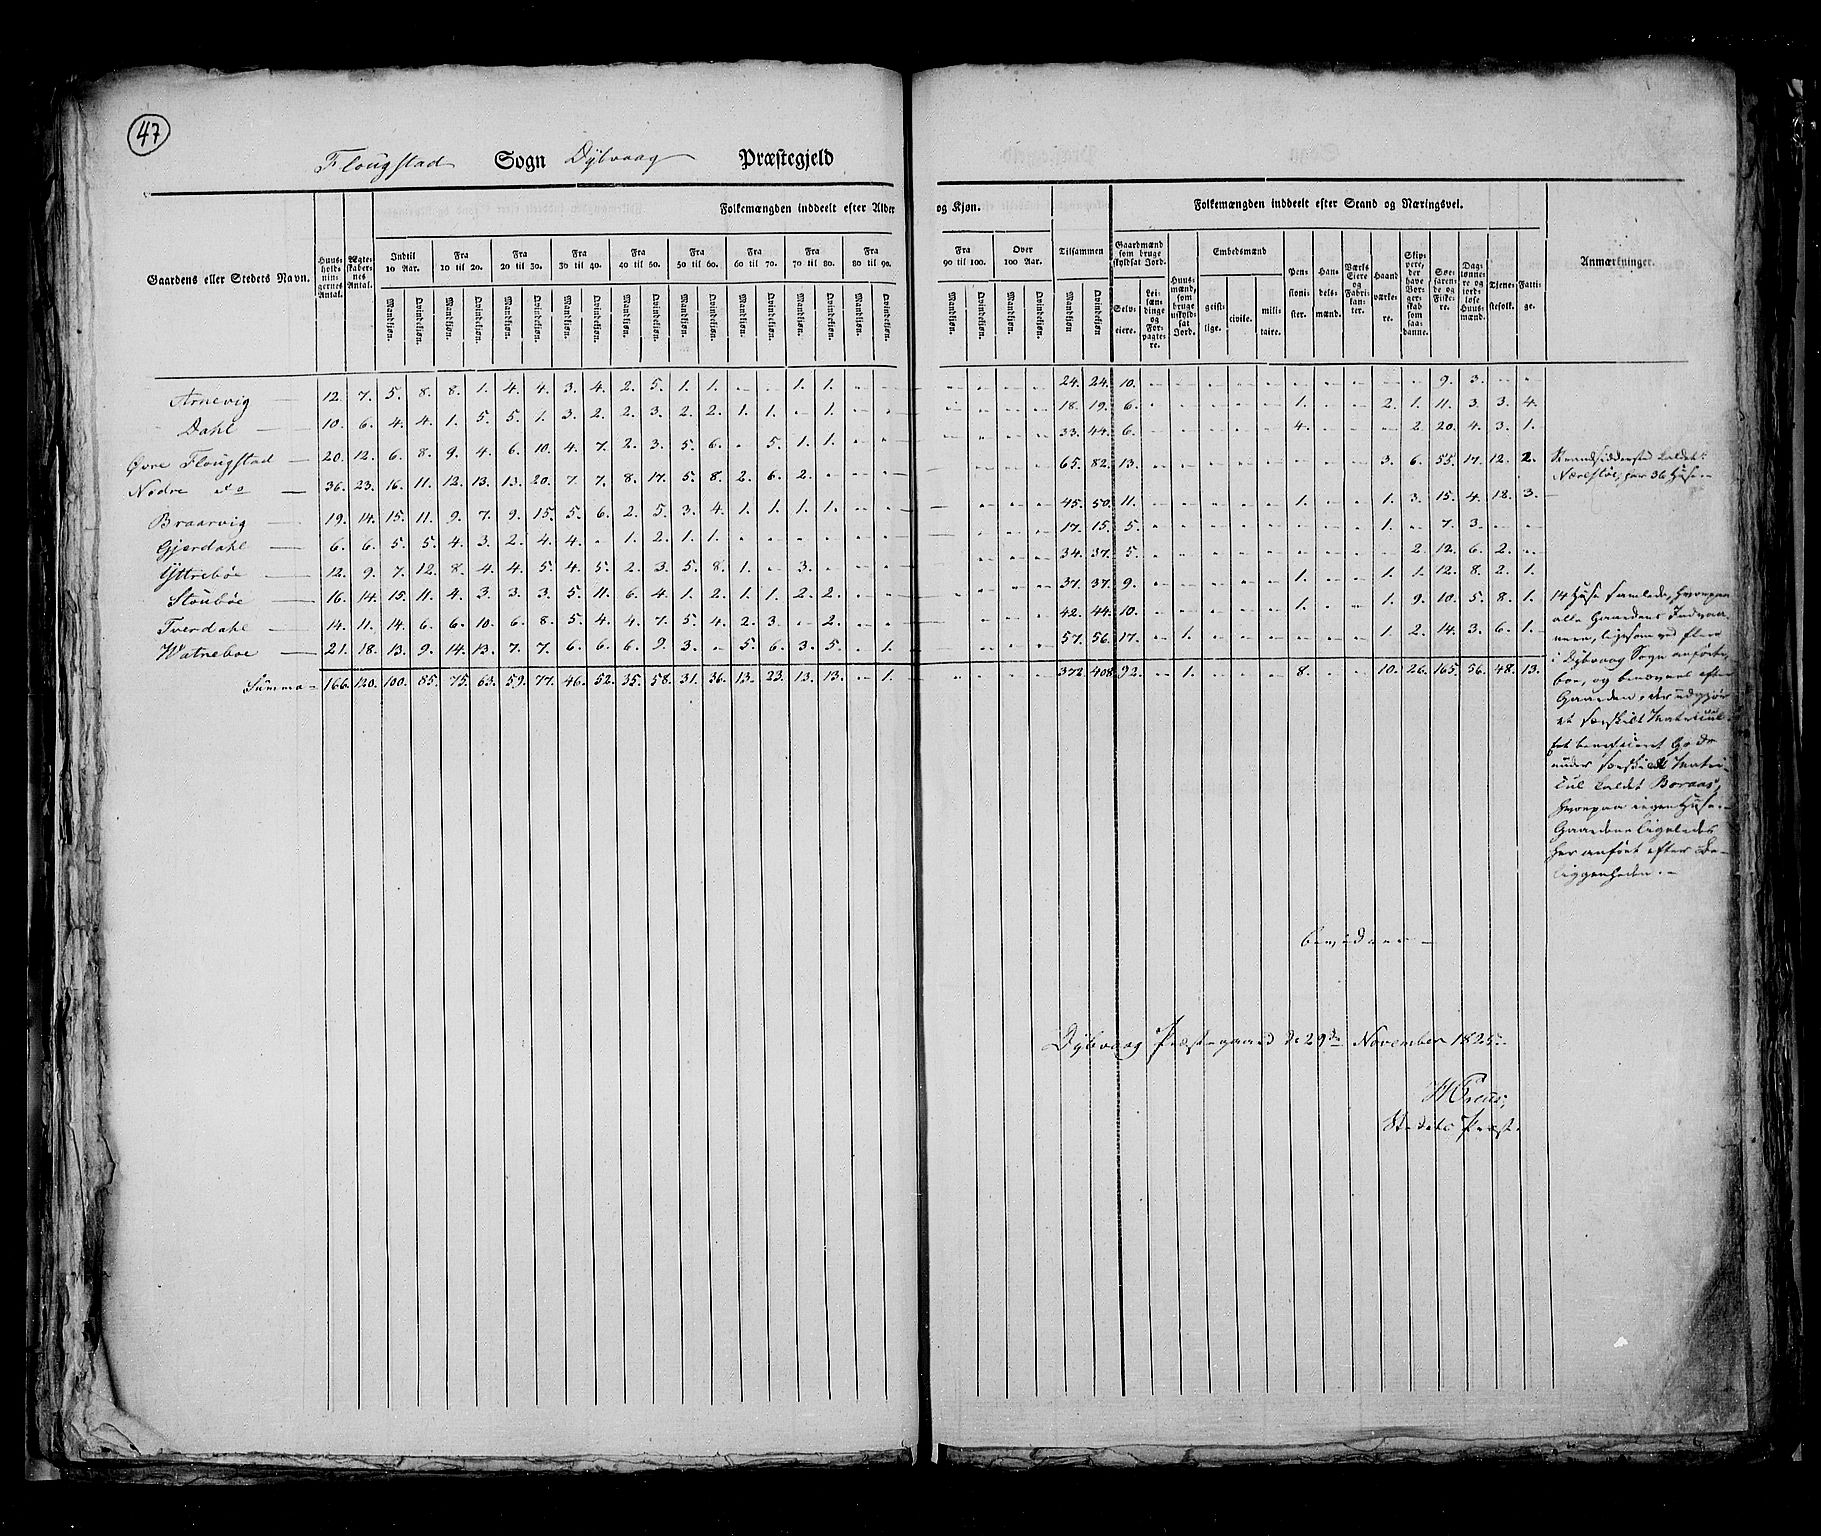 47
Flougstad Sogn Dybvaag Præstegjeld
Gaardens eller Stedets Navn.
Huus-holdningernes Antal.
Ægteskabernes Antal.
Folkemængden inddeelt efter Alder og Kjøn.
Indtil 10 Aar. Fra 10 til 20. Fra 20 til 30. Fra 30 til 40. Fra 40 til 50. Fra 50 til 60. Fra 60 til 70. Fra 70 til 80. Fra 80 til 90. Fra 90 til 100. Over 100 Aar. Tilsammen
Mandkjøn. Qvindekjøn.
Folkemængden inddeelt efter Stand og Næringsvei.
Gaardmænd som bruge skyldsat Jord.
Selveiere.
Huusmænd, som bruge uskyldsat Jord.
Embedsmænd
geistlige. civile. militaire.
Pensionister.
Handelsmænd.
Haandværkere.
Tjenestefolk.
Fattige.
Anmærkninger.
Arnevig 12. 7. 5. 8. 8. 1. 4. 4. 3. 4. 2. 5. 1. 1. - - 1. 1. - - - - - - 24. 24. 10. - - - - - - - - - - 9. 3. - -
Dahl 10. 6. 4. 4. 1. 5. 5. 1. 3. 2. 2. 3. 2. 2. 1. 1. - 1. - - - - - - 18. 19. 6. - - - - - 1. - - 2. 1. 11. 3. 3. 4.
Øvre Flougstad 20. 12. 6. 8. 9. 4. 6. 10. 4. 7. 2. 3. 5. 6. - 5. 1. 1. - - - - - - 33. 44. 6. - - - - - 4. - - - 2. 20. 4. 3. 1.
Nedre do 36. 23. 16. 11. 12. 13. 13. 20. 7. 7. 8. 17. 5. 8. 2. 6. 2. - - - - - - - 65. 82. 13. - - - - - - - - 3. 6. 55. 17. 12. 2.
Braarvig 19. 14. 15. 11. 9. 7. 9. 15. 5. 6. 2. 5. 3. 4. 1. 1. 1. 1. - - - - - - 45. 50. 11. - - - - - 1. - - 1. 3. 15. 4. 18. 3.
Gjerdahl 6. 6. 5. 5. 4. 3. 2. 4. 4. - 1. 2. 1. 1. - - - - - - - - - - 17. 15. 5. - - - - - - - - 1. - 7. 3. - -
Yttrebøe 12. 9. 7. 12. 8. 4. 4. 5. 4. 5. 2. 3. 5. 8. 1. - 3. - - - - - - - 34. 37. 5. - - - - - - - - - 2. 12. 6. 2. -
Stoubøe 16. 14. 15. 11. 4. 3. 3. 3. 5. 11. 6. 4. 1. 2. 1. 1. 2. 2. - - - - - - 37. 37. 9. - - - - - 1. - - 1. 1. 12. 8. 2. 1.
Tverdahl 14. 11. 14. 6. 6. 10. 6. 8. 5. 4. 4. 7. 5. 4. 2. 3. - 2. - - - - - - 42. 44. 10. - - - - - 1. - - 1. 9. 10. 5. 8. 1.
Watneboe 21. 18. 13. 9. 14. 13. 7. 7. 6. 6. 6. 9. 3. - 5. 6. 3. 5. - 1. - - - - 57. 56. 17. - 1. - - - - - - 1. 2. 14. 3. 6. 1.
Summa 166. 120. 100. 85. 75. 63. 59. 77. 46. 52. 35. 58. 31. 36. 13. 23. 13. 13. - 1. - - - - 372. 408. 92. - 1. - - - 8. - - 10. 26. 165. 56. 48. 13.
Strandsiddersted kaldet
36 Huse
14 Huse samlede, hvorpaa
alle Gaardens Indvaanere, ligesom ved flere
i Dybvaag Sogn anførte,
boe, og benævnes efter
Gaarden, der udgjør
et særskilt Matricul
beneficeret Gods
under særskilt Matricul kaldet Boraas,
hvorpaa ingen Huse.
Gaardene ligeledes
her anført efter Beliggenheden.
bevidner
Dybvaag Præstegaard d 29de November 1825
Stedets Præst